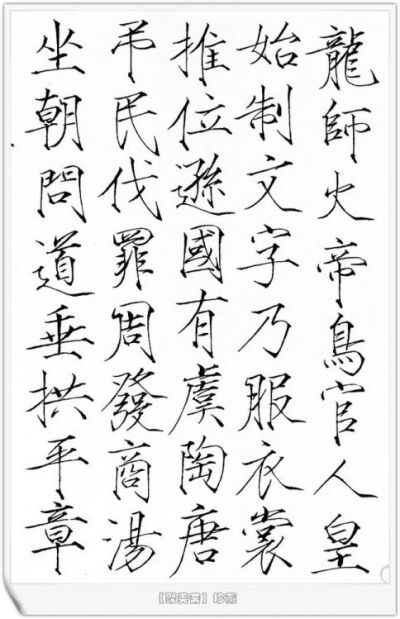 龍師火帝鳥官人皇
始制文字乃服衣裳
推位遜國有虞陶唐
弔民伐罪周發商湯
坐朝問道垂拱平章